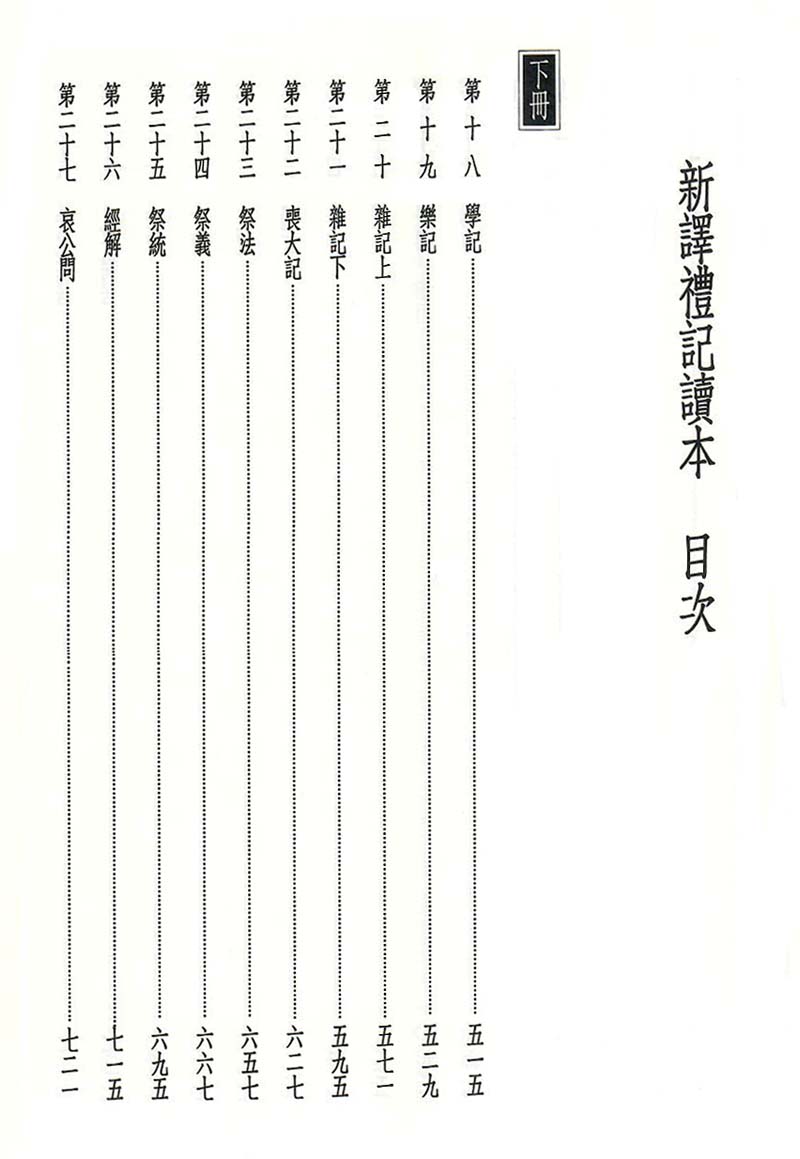 新譯禮記讀本　目次
下冊
第十八　學記……五一五
第十九　樂記……五二九
第二十　雜記上……五七一
第二十一　雜記下……五九五
第二十二　喪大記……六二七
第二十三　祭法……六五七
第二十四　祭義……六六七
第二十五　祭統……六九五
第二十六　經解……七一五
第二十七　哀公問……七二一